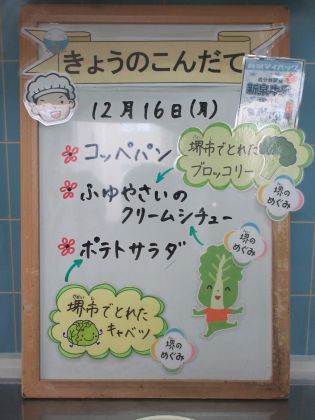 きょうのこんだて
12月16日(月)
コッペパン
ふゆやさいの
クリームシチュー
ポテトサラダ
堺市でとれた
ブロッコリー
堺の
めぐみ
堺の
めぐみ
堺市でとれた
キャベツ
堺の
めぐみ